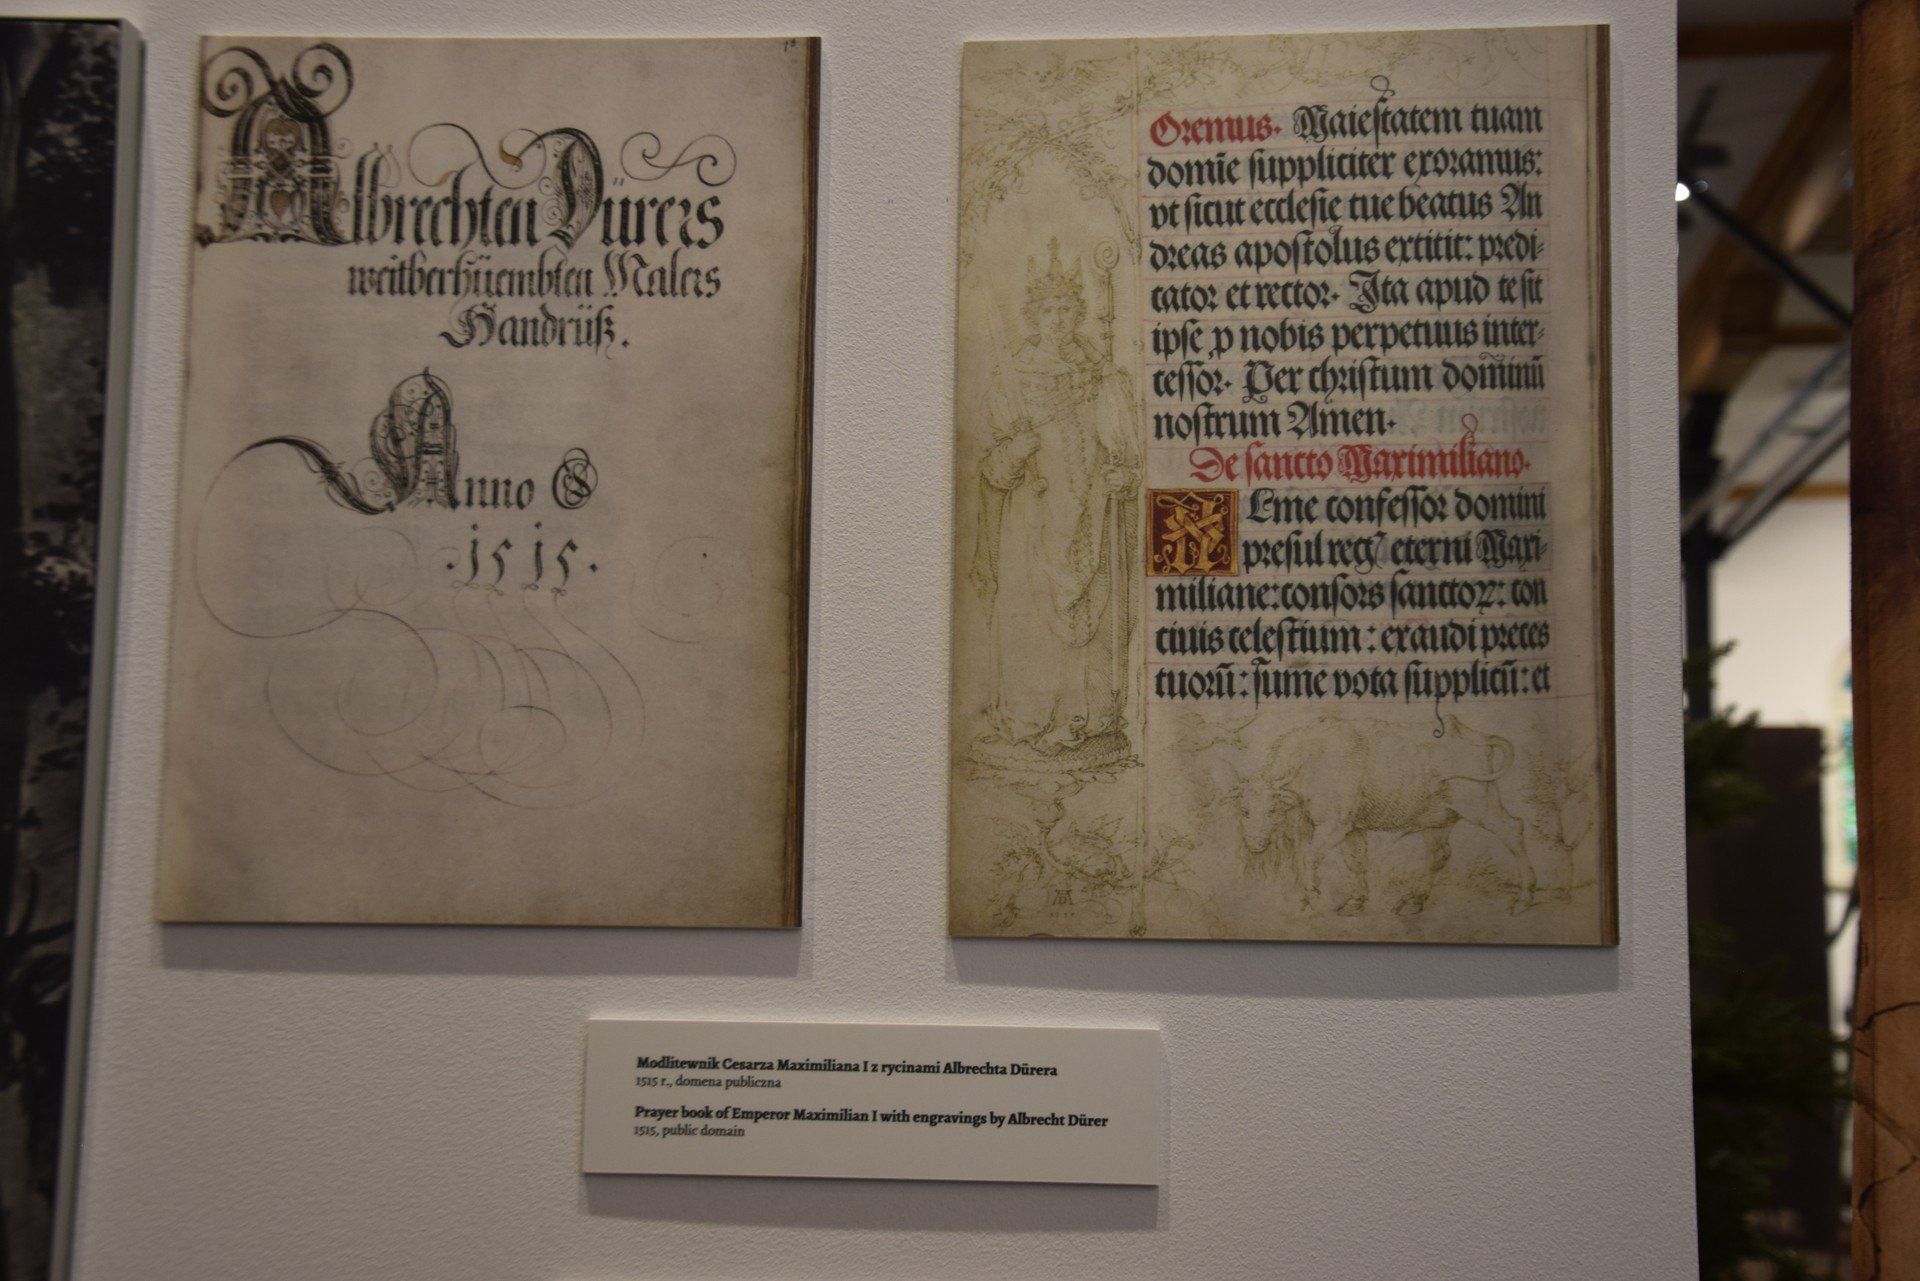 1ᵃ
Albrechten Dürers
weitberhüembten Malers
Handrüß.
Anno
·1515·
Oremus. Maiestatem tuam
domīe suppliciter exoramus:
vt sicut ecclesie tue beatus An
dreas apostolus extitit: predi-
cator et rector. Ita apud te sit
ipse ꝓ nobis perpetuus inter-
cessor. Per christum dominū
nostrum Amen.
De sancto Maximiliano.
Alme confessor domini
presul eterni Maxi-
miliane: consors sanctoꝝ: con
ciuis celestium: exaudi preces
tuorū: sume vota supplicū: et
AD
Modlitewnik Cesarza Maximiliana I z rycinami Albrechta Dürera
1515 r., domena publiczna
Prayer book of Emperor Maximilian I with engravings by Albrecht Dürer
1515, public domain